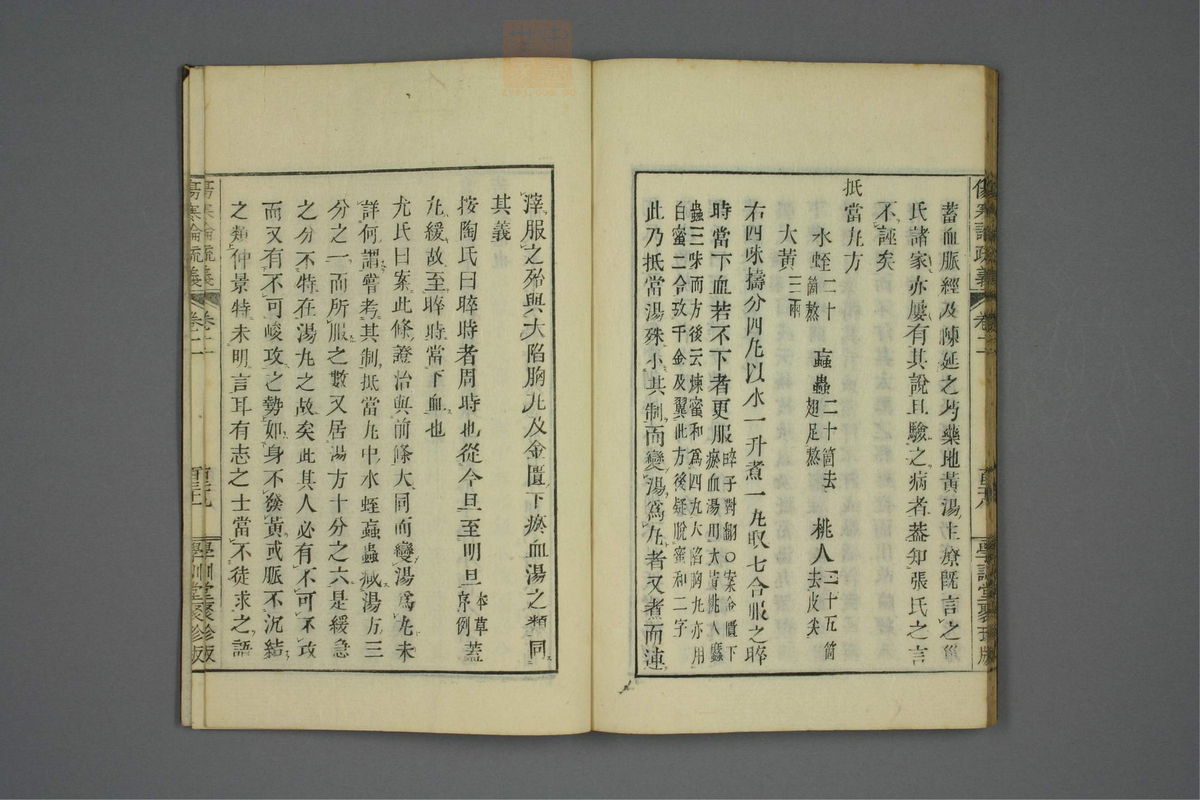 蓄血脈經及陳延之芍藥地黃湯主療既言之巢
氏諸家亦屢有其說且驗之病者葢知張氏之言
不誣矣
抵當丸方
水蛭二十箇熬 䖟蟲二十箇去翅足熬 桃人二十五箇去皮尖
大黃三兩
右四味擣分四丸以水一升煮一丸取七合服之晬
時當下血若不下者更服晬子對翻○案金匱下瘀血湯用大黃桃人䗪
蟲三味而方後云煉蜜和爲四丸大陷胸丸亦用
白蜜二合攷千金及翼此方後疑脫蜜和二字
此乃抵當湯殊小其制而變湯爲丸者又煮而連
滓服之殆與大陷胸丸及金匱下瘀血湯之類同
其義
按陶氏曰晬時者周時也從今旦至明旦本草序例葢
丸緩故至晬時當下血也
尤氏曰案此條證治與前條大同而變湯爲丸未
詳何謂嘗考其制抵當丸中水蛭䖟蟲減湯方三
分之一而所服之數又居湯方十分之六是緩急
之分不特在湯丸之故矣此其人必有不可不攻
而又有不可峻攻之勢如身不發黃或脈不沉結
之類仲景特未明言耳有志之士當不徒求之語
傷寒論疏義 卷二 學訓堂聚珍版
傷寒論疏義 卷二 學訓堂聚珍版